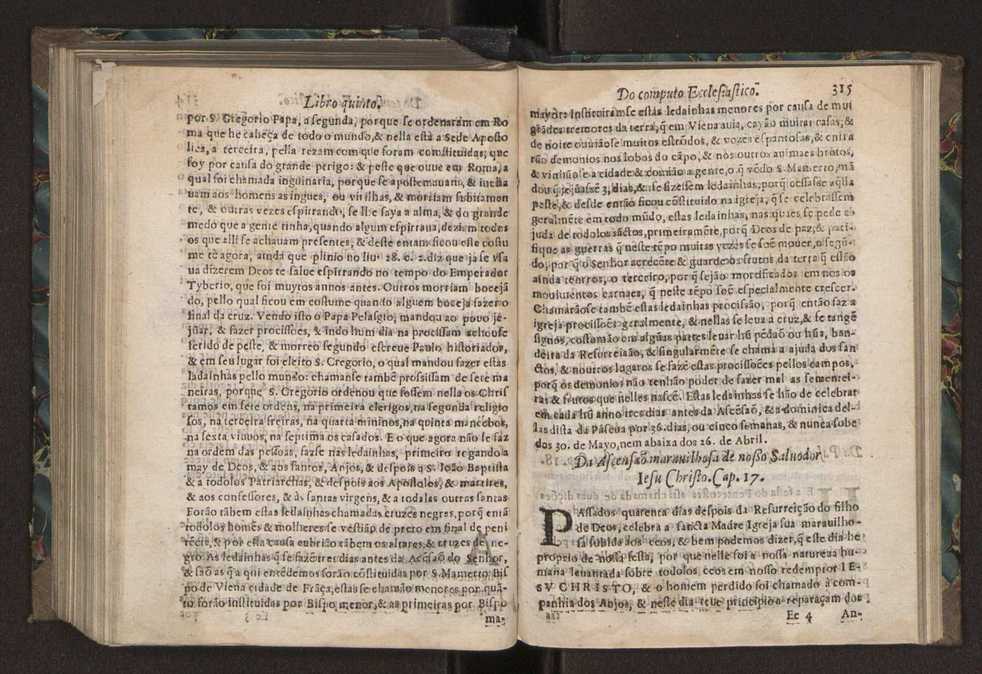 Libro quinto.
por S. Gregorio Papa, a segunda, porque se ordenaram em Ro
ma que he cabeça de todo o mundo, & nella està a Sede Aposto
lica, a terceira, pella rezam com que foram constituidas; que
foy por causa do grande perigo: & peste que ouue em Roma, a
qual foi chamada inguinaria, porque se apostemauam, & incha
uam aos homens as ingues, ou virilhas, & morriam subitamen
te, & outras vezes espirrando, se lhe saya a alma, & do grande
medo que a gente tinha, quando algum espirraua, deziam todos
os que alli se achauam presentes, & deste entam ficou este costu
me tè agora, ainda que plinio no liu. 28. c. 2. diz que ja se vsa
ua dizerem Deos te salue espirrando no tempo do Emperador
Tyberio, que foi muytos annos antes. Outros morriam boceja
do, pello qual ficou em costume quando alguem boceja fazer o
sinal da cruz. Vendo isto o Papa Pelasgio, mandou ao pouo je-
juar, & fazer procissões, & indo hum dia na procissam achouse
ferido de peste, & morreo segundo escreue Paulo historiador,
& em seu lugar foi eleito S. Gregorio, o qual mandou fazer estas
ladainhas pello mundo: chamanse tambẽ prosissam de sete ma
neiras, porque S. Gregorio ordenou que fossem nella os Chris
tamos em sete ordens, na primeira clerigos, na segunda religio
sos, na terceira freiras, na quarta mininos, na quinta mancebos,
na sexta viuuos, na septima os casados. E o que agora não se faz
na ordem das pessoas, fazse nas ledainhas, primeiro regando a
may de Deos, & aos santos, Anjos, & despois a S. João Baptista
& a todolos Patriarchas, & despois aos Apostolos, & martires,
& aos confessores, & às santas virgens, & a todalas outras santas
Forão tãbem estas ledainhas chamadas cruzes negras, porq̃ entã
todolos homẽs & molheres se vestião de preto em sinal de peni
tẽcia, & por esta causa cubrião tãbem os altares, & cruzes de ne-
gro. As ledainhas q̃ se fazẽ tres dias antes da Ascẽsão do Senhor,
& são as q̃ a qui entẽdemos forão cõstituidas por S. Mamerto Bis
po de Viena cidade de Frãça; estas se chamão menores por quã-
to forão instituidas por Bispo, menor, & as primeiras por Bispo
Ee 3
ma-
Do computo Ecclesiastico. 315
mayor: Instituiramse estas ledainhas menores por causa de mui
grãdes tremores da terra, q̃ em Viena auia, cayão muitas casas, &
de noite ouuiãose muitos estrõdos, & vozes espantosas, & entra
rão demonios nos lobos do cãpo, & nos outros animaes brutos,
& vinhãose a cidade & comião a gente, o q̃ vẽdo S. Mamerto, mã
dou q̃ jejũassẽ 3. dias, & se fizessem ledainhas, porq̃ cessasse aq̃lla
peste, & desde então ficou cõstituido na igreja, q̃ se celebrassem
geralmẽte em todo mũdo, estas ledainhas, nas quaes se pede a-
juda de todolos sãctos, primeiramẽte, porq̃ Deos de paz, & paci-
fique as guerras q̃ neste tẽpo muitas vezes se soẽ mouer, o segũ-
do, por q̃ o Senhor acrecẽte & guarde os frutos da terra q̃ estão
ainda tenros, o terceiro, por q̃ sejão mortificados em nos os
mouimentos carnaes, q̃ neste tẽpo soẽ especialmente crescer.
Chamarãose tambẽ estas ledainhas procissão, porq̃ então faz a
igreja procissões geralmente, & nellas se leua a cruz, & se tangẽ
signos, costumão em alguas partes leuar hũ pẽdão ou hũa, ban-
deira da Resurreisão, & singularmẽte se chama a ajuda dos san
ctos, & noutros lugares se fazẽ estas procissões pellos campos,
porq̃ os demonios não tenhão poder de fazer mal as sementei-
ras & frutos que nelles nascẽ. Estas ledainhas se hão de celebrar
em cada hũ anno tres dias antes da Ascẽsão, & a dominica del-
las dista da Pascua por 36. dias, ou cinco semanas, & nunca sobe
dos 30. de Mayo, nem abaixa dos 26. de Abril.
Da Ascensaõ marauilhosa de nosso Saluador
Iesu Christo. Cap. 17.
PAssados quarenta dias despois da Resurreição do filho
de Deos, celebra a sancta Madre Igreja sua marauilho-
sa subida aos ceos, & bem podemos dizer, q̃ este dia he
proprio de nossa festa, por que nelle foi a nossa natureza hu-
mana leuantada sobre todolos ceos em nosso redemptor IE-
SV CHRISTO, & o homem perdido foi chamado à com-
panhia dos Anjos, & neste dia teue principio a reparaçam dos
Ee 4 An-